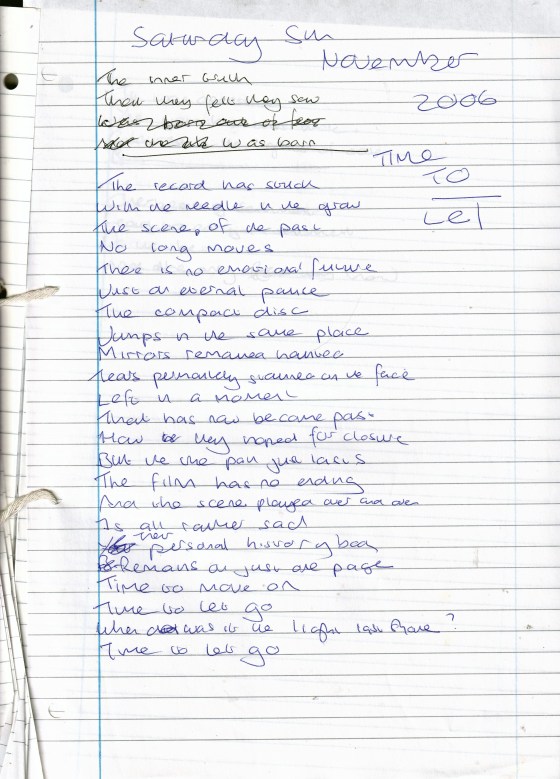 Saturday Sun
November
2006
The inner truth
That they felt they saw
was born
TIME
TO
Let
The record has stuck
With the needle in the grow
The scene, of the past
No long moves
There is no emotional future
Just an eternal pause
The compact disc
Jumps in the same place
Mirrors remained haunted
Tears permantley stained on the face
Left in a moment
That has now became past
How they hoped for closure
But the the pain just lasts
The film has no ending
And the scene played over and over
Is all rather sad
Their personal history book
Remains on just one page
Time to move on
Time to let go
When was it the light last shone?
Time to let go